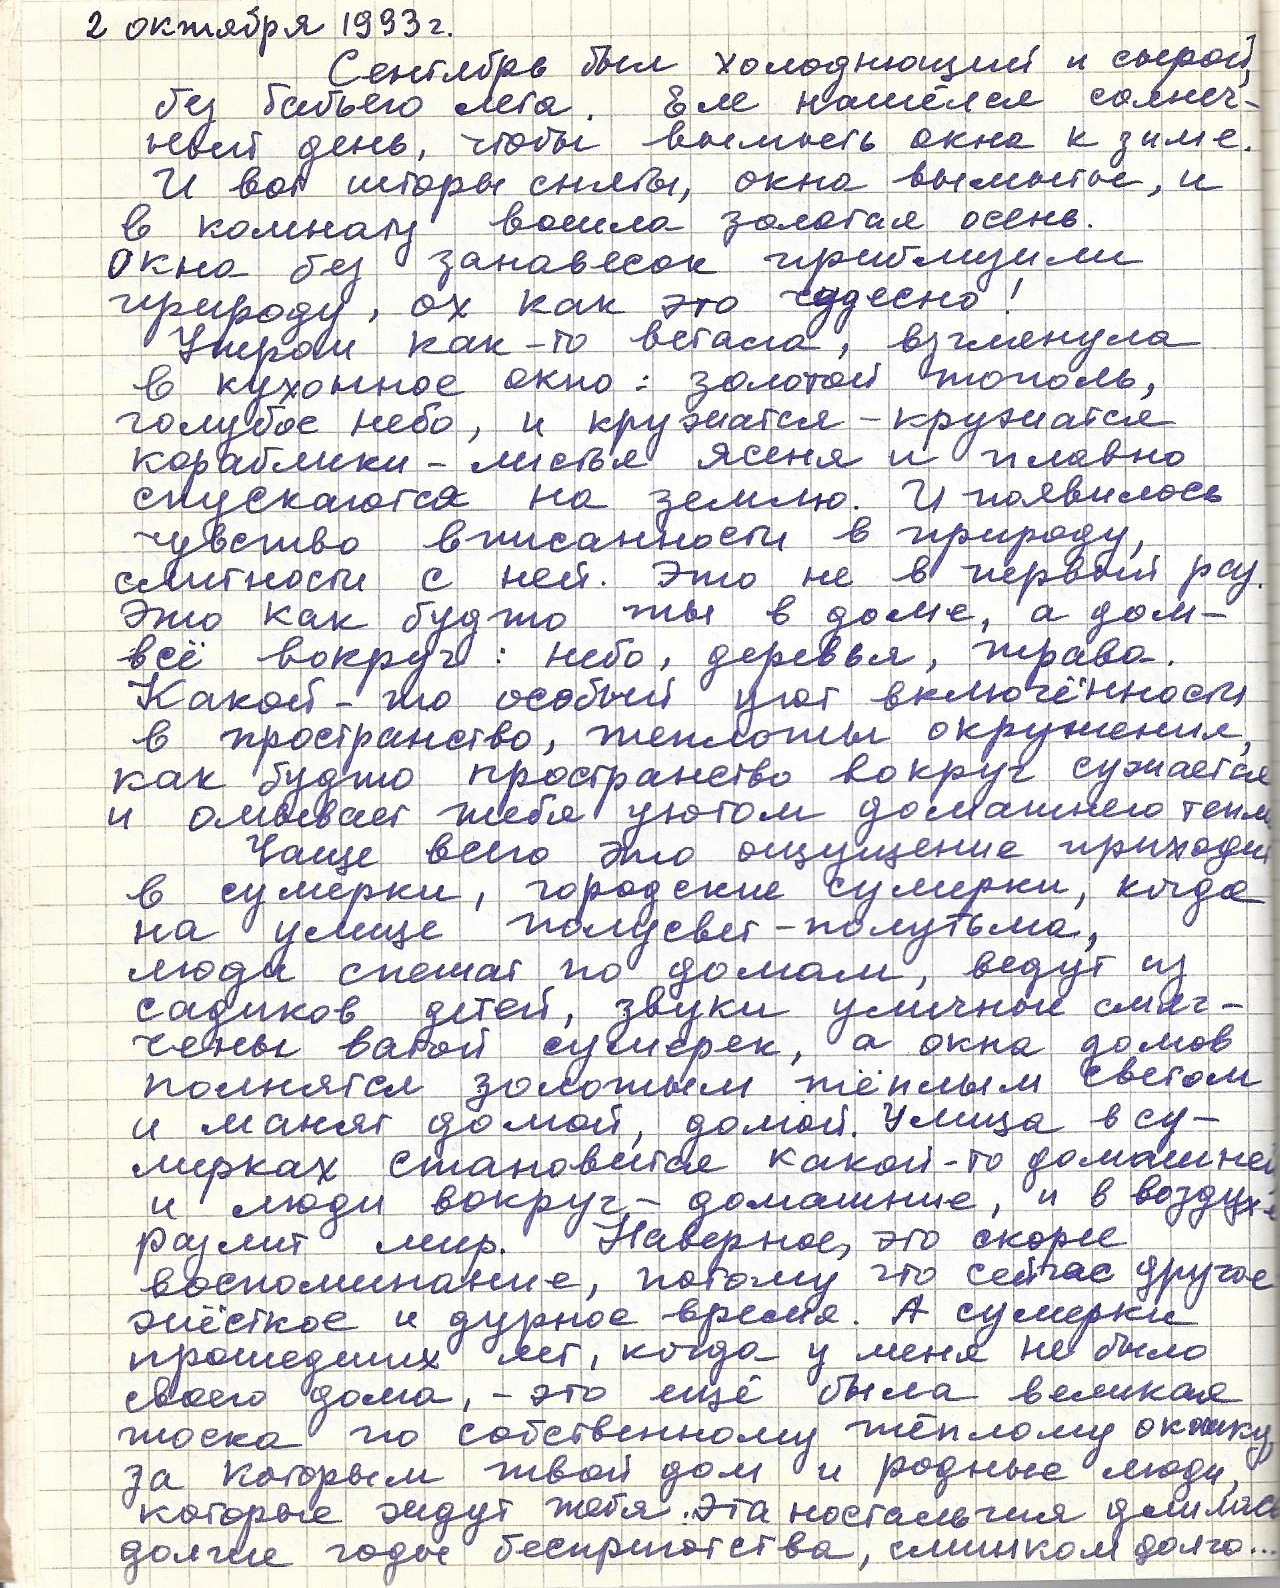 2 октября 1993 г.
Сентябрь был холоднющий и сырой,
без бабьего лета. Еле нашёлся солнеч-
ный день, чтобы вымыть окна к зиме.
И вот шторы сняты, окна вымыты, и
в комнату вошла золотая осень.
Окна без занавесок приблизили
природу, ох как это чудесно!
Утром как-то встала, взглянула
в кухонное окно: золотой тополь,
голубое небо, и кружатся-кружатся
кораблики - листья ясеня и плавно
спускаются на землю. И появилось
чувство вписанности в природу,
слитности с ней. Это не в первый раз.
Это как будто ты в доме, а дом-
всё вокруг: небо, деревья, трава.
Какой-то особый уют включённости
в пространство, теплоты окружения,
как будто пространство вокруг сужается
и омывает тебя уютом домашнего тепла.
Чаще всего это ощущение приходит
в сумерки, городские сумерки, когда
на улице полусвет-полутьма,
люди спешат по домам, ведут из
садиков детей, звуки уличные смяг-
чены ватой сумерек, а окна домов
полнятся золотым тёплым светом
и манят домой, домой. Улица в су-
мерках становится какой-то домашней
и люди вокруг - домашние, и в воздухе
разлит мир. Наверное, это скорее
воспоминание, потому что сейчас другое
жёсткое и дурное время. А сумерки
прошедших лет, когда у меня не было
своего дома, - это ещё была великая
тоска по собственному тёплому окошку,
за которым твой дом и родные люди,
которые ждут тебя. Эта ностальгия длилась
долгие годы бесприютства, слишком долго...